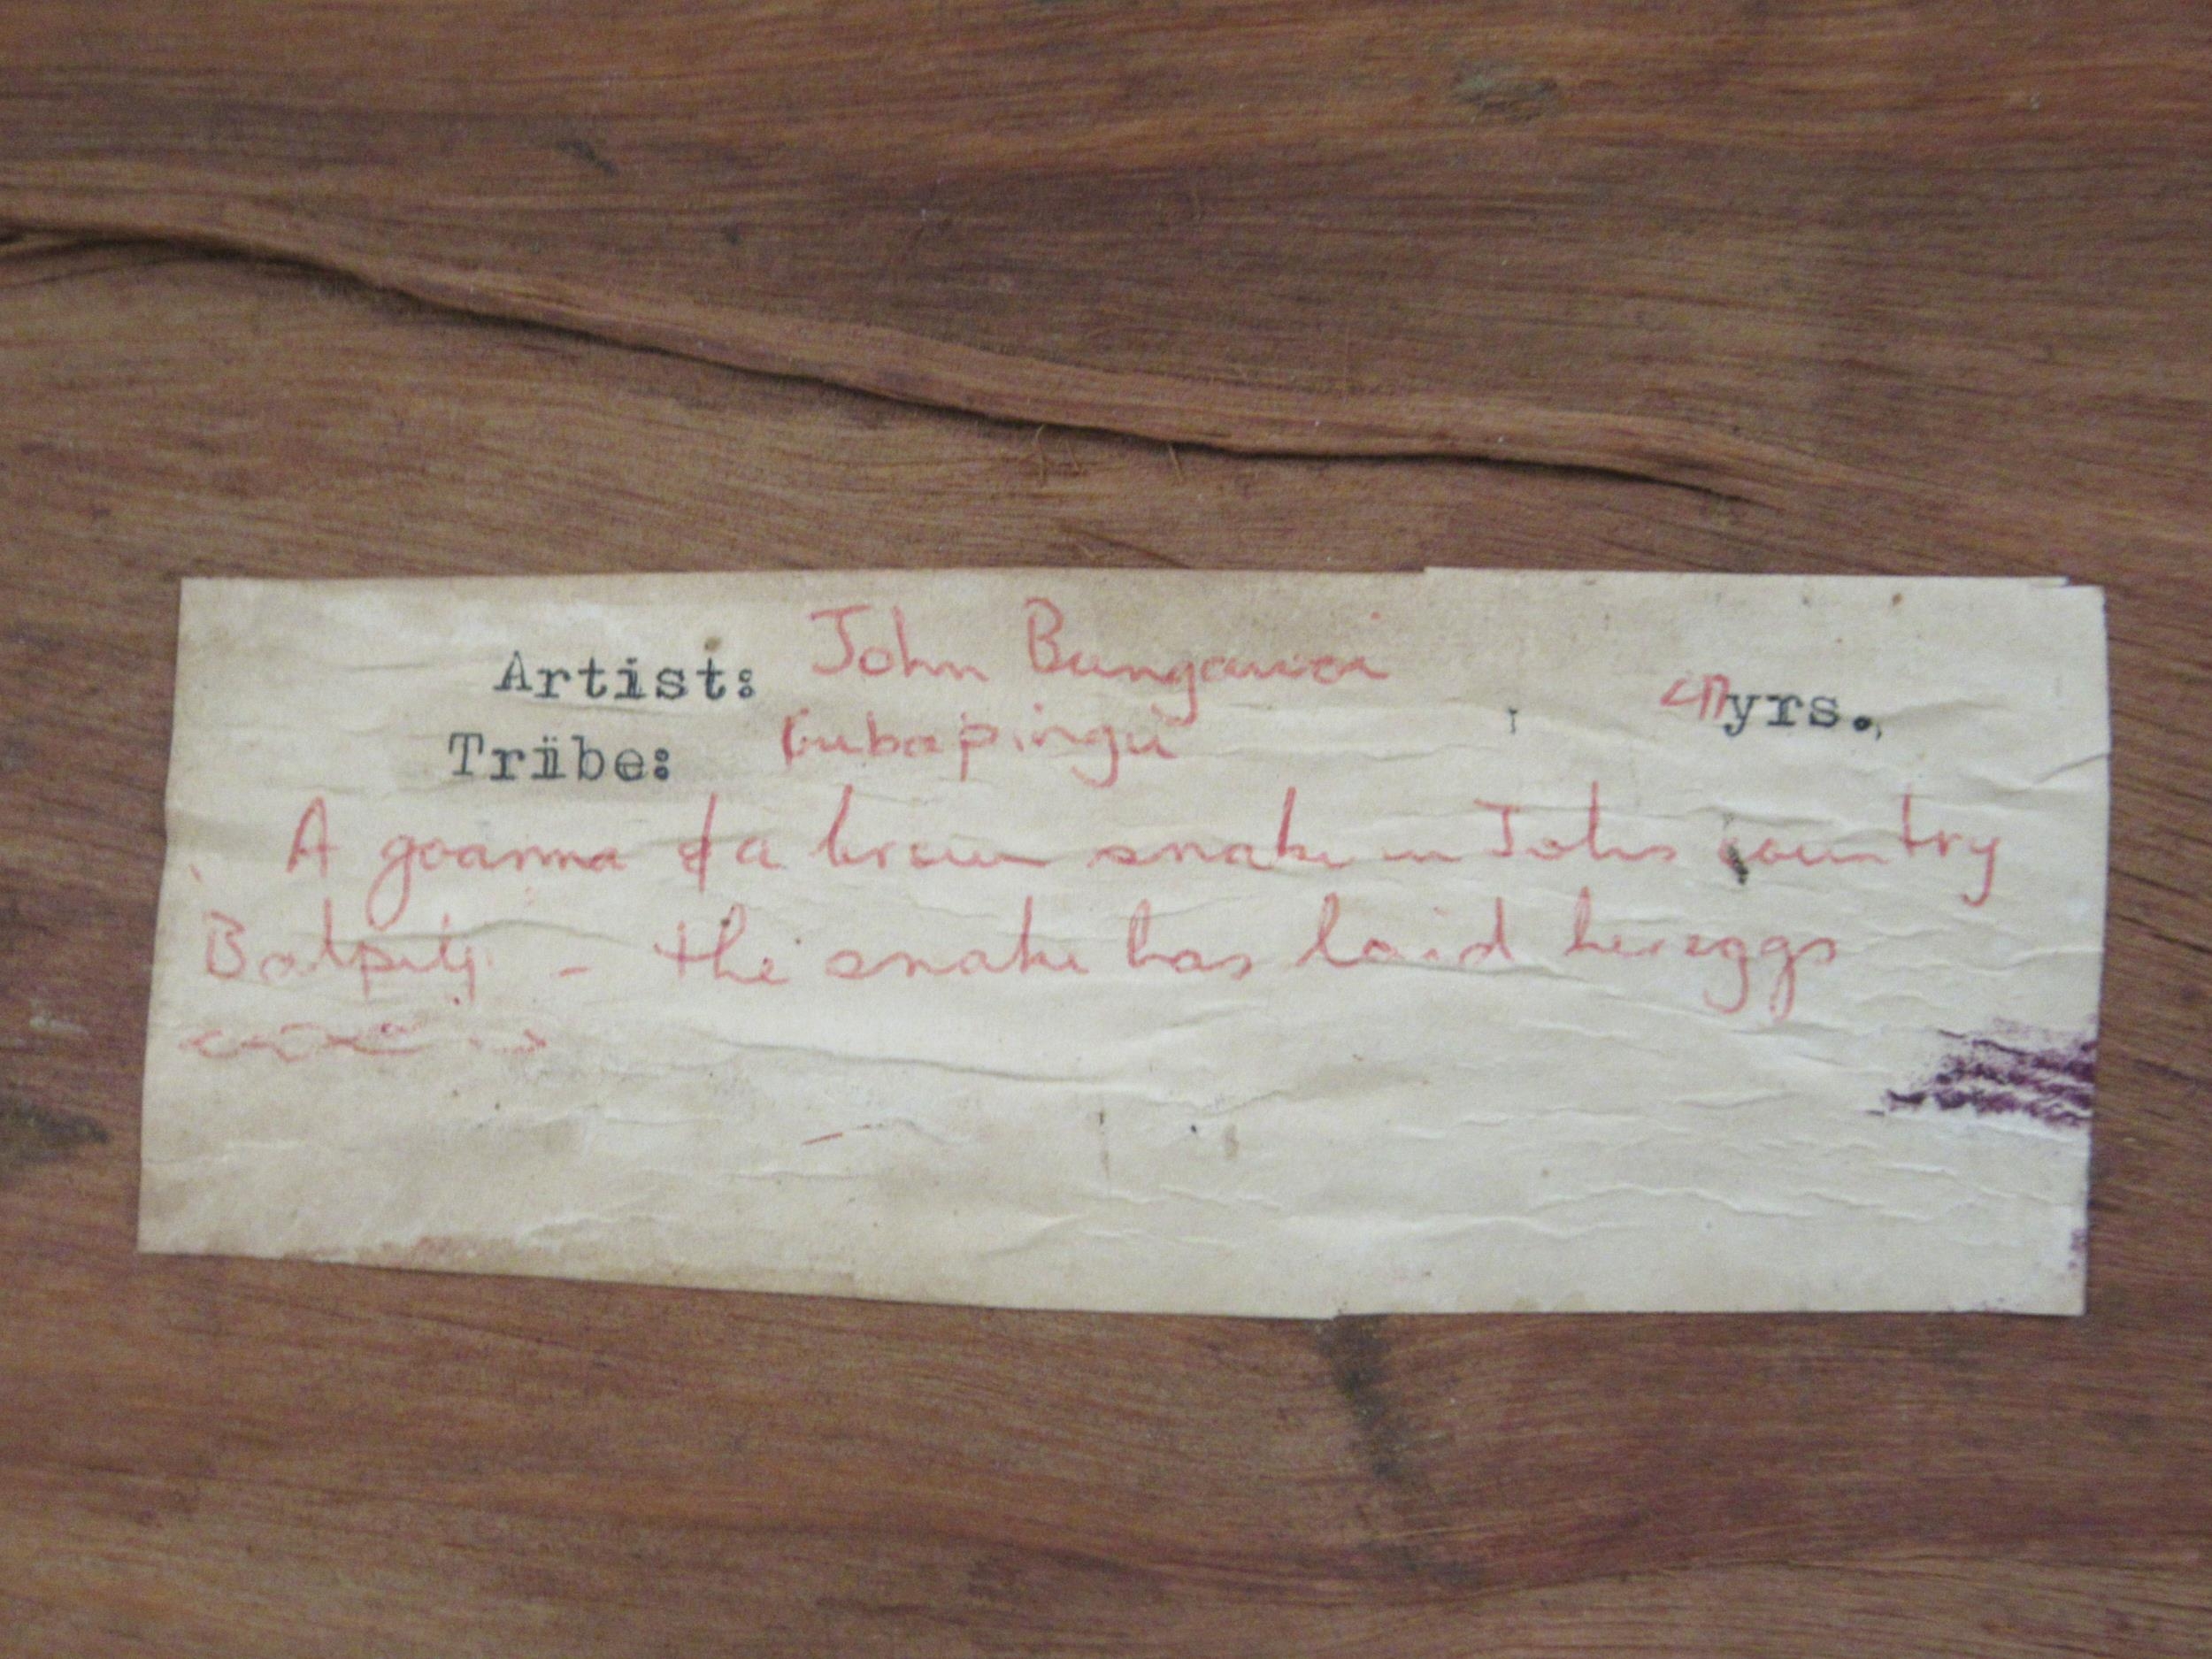 Artist: John Bungawai , yrs.,
Tribe: Gubapingu
A goanna & a brown snake in Johns country
- the snake has laid her eggs